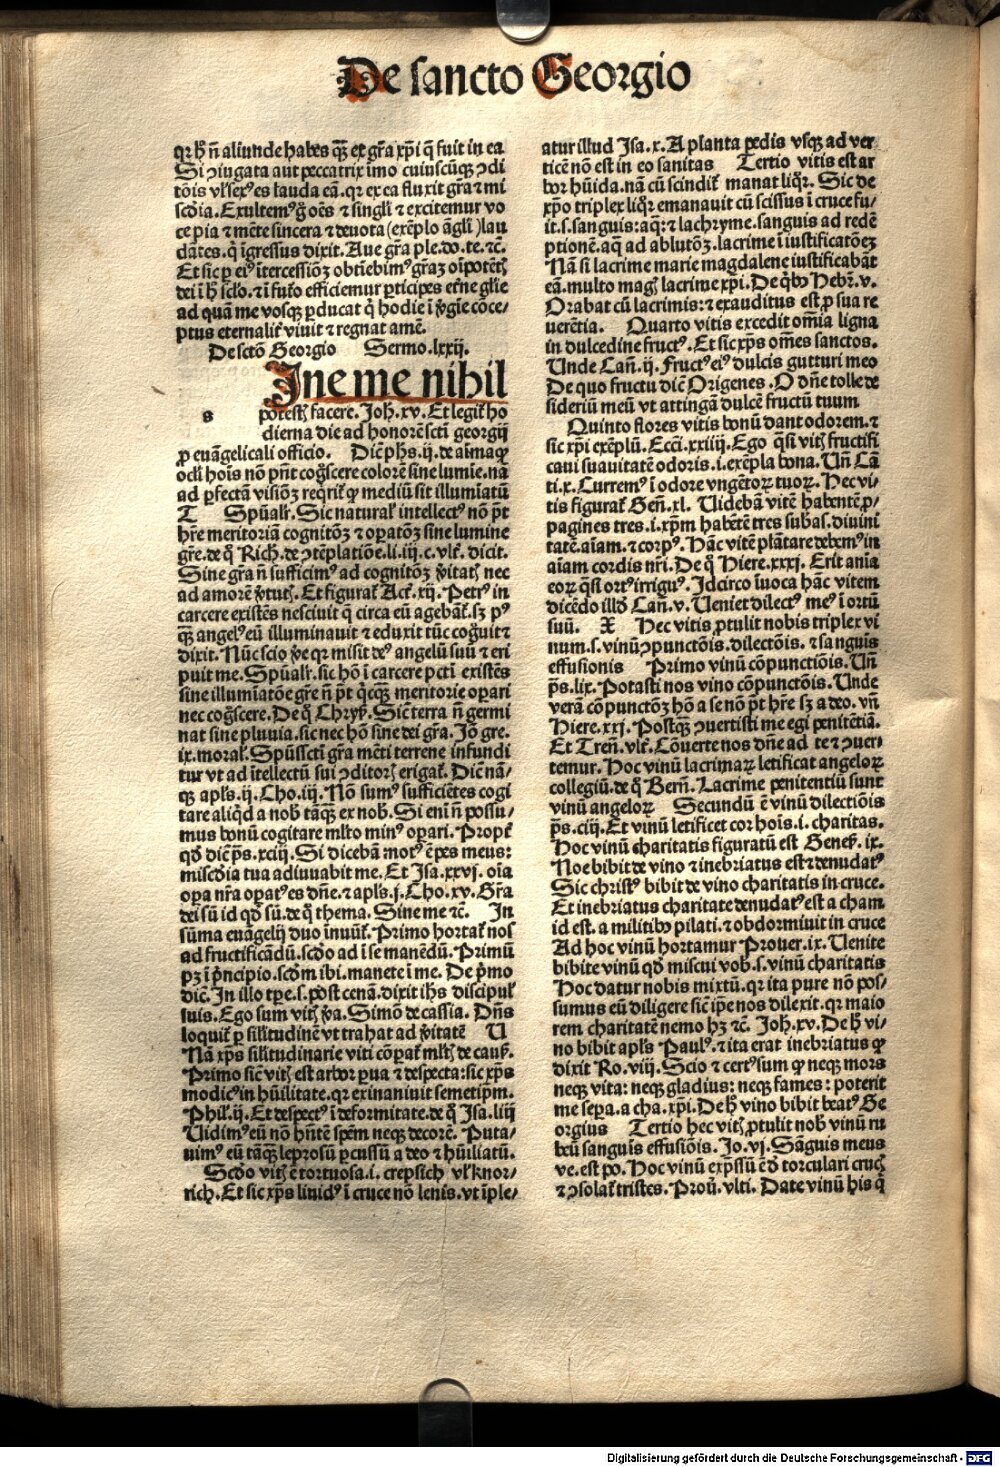 De sancto Georgio
qr ħ ñ aliunde habes qȝ ex gr̃a xp̃i q̃ fuit in ea
Si ↄiugata aut peccatrix imo cuiuscũqȝ ↄdi
tõis vl̕ sexꝰ es lauda eã. qr ex ea fluxit gr̃a ⁊ mi
sc̃dia. Exultemꝰ g̊ oẽs ⁊ singl̕i ⁊ excitemur vo
ce pia ⁊ mẽte sincera ⁊ deuota (exẽplo ãgl̕i) lau
dãtes. q̃ ĩgressus dixit. Aue gr̃a ple. do. te. ⁊c̃.
Et sic ꝑ eiꝰ ĩtercessiõȝ obtiebimꝰ gr̃aȝ oĩpotẽtꝭ
dei ĩ ħ sc̃lo. ⁊ ĩ futo efficiemur ꝑticipes etñe gl̕ie
ad quã me vosqȝ ꝑducat q̃ hodie ĩ ṽgĩe cõce⸗
ptus eternalit̕ viuit ⁊ regnat amẽ.
De sctõ Georgio Sermo. lxxij.
Ine me nihil
s potestꝭ facere. Joh̕. xv. Et legit̕ ho
dierna die ad honorẽ sctĩ georgij
ꝓ euãgelicali officio. Dic̃ ph̕s. ij. de aĩma ꝙ
ocl̕i hoĩs nõ pñt cog̊scere colorẽ sine lumĩe. nã
ad ꝑfectã visiõȝ reqrit̕ ꝙ mediũ sit illumĩatũ
T Spũalr̕. Sic natural̕ intellectꝰ nõ p̃t
h̕re meritoriã cognitõȝ ⁊ opatõȝ sine lumine
gr̃e. de q̊ Rich̕. de ↄtẽplatiõe. li. iij. c. vlt̕. dicit.
Sine gr̃a ñ sufficimꝰ ad cognitõȝ ṽitatꝭ nec
ad amorẽ ṽtutꝭ. Et figurat̕ Act̕. xij. Petrꝰ in
carcere existẽs nesciuit q̃ circa eũ agebãt̕. sȝ pꝰ
qȝ̃ angelꝰ eũ illuminauit ⁊ eduxit tũc cog̊uit ⁊
dixit. Nũc scio ṽe qr misit deꝰ angelũ suũ ⁊ eri
puit me. Spũalr̕. sic hõ ĩ carcere pctĩ existẽs
sine illumĩatõe gr̃e ñ p̃t q̃cqȝ̃ meritorie oꝑari
nec cog̊scere. De q̊ Chryß. Sic̃ terra ñ germi
nat sine pluuia. sic nec hõ sine dei gr̃a. Jo̊ gre.
ix. moral̕. Spũssctĩ gr̃a mẽti terrene infundi
tur vt ad ĩtellectũ sui ↄditorꝭ erigat̕. Dic̃ nã⸗
qȝ apl̕s. ij. Cho. iij. Nõ sumꝰ sufficiẽtes cogi
tare aliq̃d a nobꝭ tãqȝ̃ ex nob̕. Si enĩ ñ possu⸗
mus bonũ cogitare ml̕to minꝰ oꝑari. Propt̕
qđ dic̃ p̃s. xciij. Si dicebã motꝰ ẽ pes meus:
misc̃dia tua adiuuabit me. Et Isa. xxvj. oĩa
oꝑa nr̃a oꝑatꝰ es dñe. ⁊ apl̕s. j. Cho. xv. Gr̃a
dei sũ id qđ sũ. de q̊ thema. Sine me ⁊c̃. In
sũma euãgelij duo ĩnuũt̕. Primo hortat̕ nos
ad fructificãdũ. scđo ad ĩ se manẽdũ. Primũ
pȝ ĩ p̃ncipio. scđm ibi. manete ĩ me. De p̃mo
dic̃. In illo tꝑe. s. post cenã. dixit ih̕s discipul̕
suis. Ego sum vitꝭ ṽa. Simõ de cassia. Dñs
loquit̕ ꝑ sil̕itudinẽ vt trahat ad ṽitatẽ U
Nã xp̃s sil̕itudinarie viti cõꝑat̕ ml̕tꝭ de cauß.
Primo sic̃ vitꝭ est arbor ꝑua ⁊ despecta: sic xp̃s
modicꝰ in hũilitate. qr exinaniuit semetip̃m.
Phil̕. ij. Et despectꝰ ĩ deformitate. de q̊ Isa. liij
Uidimꝰ eũ nõ hñtẽ spẽm neqȝ decorẽ. Puta⸗
uimꝰ eũ tãqȝ̃ leprosũ ꝑcussũ a deo ⁊ hũiliatũ.
Scđo vitꝭ ẽ tortuosa. i. crepsich vl̕ knor⸗
rich. Et sic xp̃s liuidꝰ ĩ cruce nõ lenis. vt ĩple⸗
atur illud Isa. x. A planta pedis vsqȝ ad ver
ticẽ nõ est in eo sanitas Tertio vitis est ar
bor hũida. nã cũ scindit̕ manat liq̊r. Sic de
xp̃o triplex liq̊r emanauit cũ scissus ĩ cruce fu⸗
it. s. sanguis: aq̃: ⁊ lachryme. sanguis ad redẽ
ptionẽ. aq̃ ad ablutõȝ. lacrime ĩ iustificatõeȝ
Nã si lacrime marie magdalene iustificabãt
eã. multo magꝭ lacrime xp̃i. De q̊bꝰ Hebr̕. v.
Orabat cũ lacrimis: ⁊ exauditus est ꝓ sua re
uerẽtia. Quarto vitis excedit om̃ia ligna
in dulcedine fructꝰ. Et sic xp̃s om̃es sanctos.
Unde Cañ. ij. Fructꝰ eiꝰ dulcis gutturi meo
De quo fructu dic̃ Origenes. O dñe tolle de
sideriũ meũ vt attingã dulcẽ fructũ tuum
Quinto flores vitis bonũ dant odorem. ⁊
sic xp̃i exẽplũ. Ecci̕. xxiiij. Ego q̃si vitꝭ fructifi
caui suauitatẽ odoris. i. exẽpla bona. Uñ Cã
ti. x. Curremꝰ ĩ odore vngẽtoꝝ tuoꝝ. Hec vi⸗
tis figurat̕ Geñ. xl. Uidebã vitẽ habentẽ ꝓ⸗
pagines tres. i. xp̃m habẽtẽ tres subãs. diuini
tatẽ. aĩam. ⁊ corpꝰ. Hãc vitẽ plãtare debemꝰ in
aĩam cordis nr̃i. De q̊ Hiere. xxxj. Erit anĩa
eoꝝ q̃si ortꝰ irriguꝰ. Idcirco ĩuoca hãc vitem
dicẽdo illđ Cañ. v. Ueniet dilectꝰ meꝰ ĩ ortũ
suũ. X Hec vitis ꝓtulit nobis triplex vi
num. s. vinũ ↄpunctõis. dilectõis. ⁊ sanguis
effusionis Primo vinũ cõpunctiõis. Uñ
p̃s. lix. Potasti nos vino cõpunctõis. Unde
verã cõpunctõȝ hõ a se nõ p̃t h̕re sȝ a deo. vñ
Hiere. xxj. Postqȝ̃ ↄuertisti me egi penitẽtiã.
Et Treñ. vlt̕. Cõuerte nos dñe ad te ⁊ ↄuer⸗
temur. Hoc vinũ lacrimaꝝ letificat angeloꝝ
collegiũ. de q̊ Berñ. Lacrime penitentiũ sunt
vinũ angeloꝝ Secundũ ẽ vinũ dilectiõis
p̃s. ciij. Et vinũ letificet cor hoĩs. i. charitas.
Hoc vinũ charitatis figuratũ est Geneß. ix.
Noe bibit de vino ⁊ inebriatus est ⁊ denudatꝰ
Sic christꝰ bibit de vino charitatis in cruce.
Et inebriatus charitate denudatꝰ est a cham
id est. a militibꝰ pilati. ⁊ obdormiuit in cruce
Ad hoc vinũ hortamur Prouer. ix. Uenite
bibite vinũ qđ miscui vob̕. s. vinũ charitatis
Hoc datur nobis mixtũ. qr ita pure nõ pos⸗
sumus eũ diligere sic̃ ip̃e nos dilexit. qr maio
rem charitatẽ nemo hȝ ⁊c̃. Joh̕. xv. De ħ vi⸗
no bibit apl̕s Paulꝰ. ⁊ ita erat inebriatus ꝙ
dixit Ro. viij. Scio ⁊ certꝰ sum ꝙ neqȝ mors
neqȝ vita: neqȝ gladius: neqȝ fames: poterit
me seꝑa. a cha. xp̃i. De ħ vino bibit beatꝰ Ge
orgius Tertio hec vitꝭ ꝓtulit nob̕ vinũ ru
beũ sanguis effusiõis. Jo. vj. Sãguis meus
ve. est po. Hoc vinũ exp̃ssũ ẽ đ torculari crucꝭ
⁊ ↄsolat̕ tristes. Proũ. vlti. Date vinũ his q̃
Digitalisierung gefördert durch die Deutsche Forschungsgemeinschaft - DFG